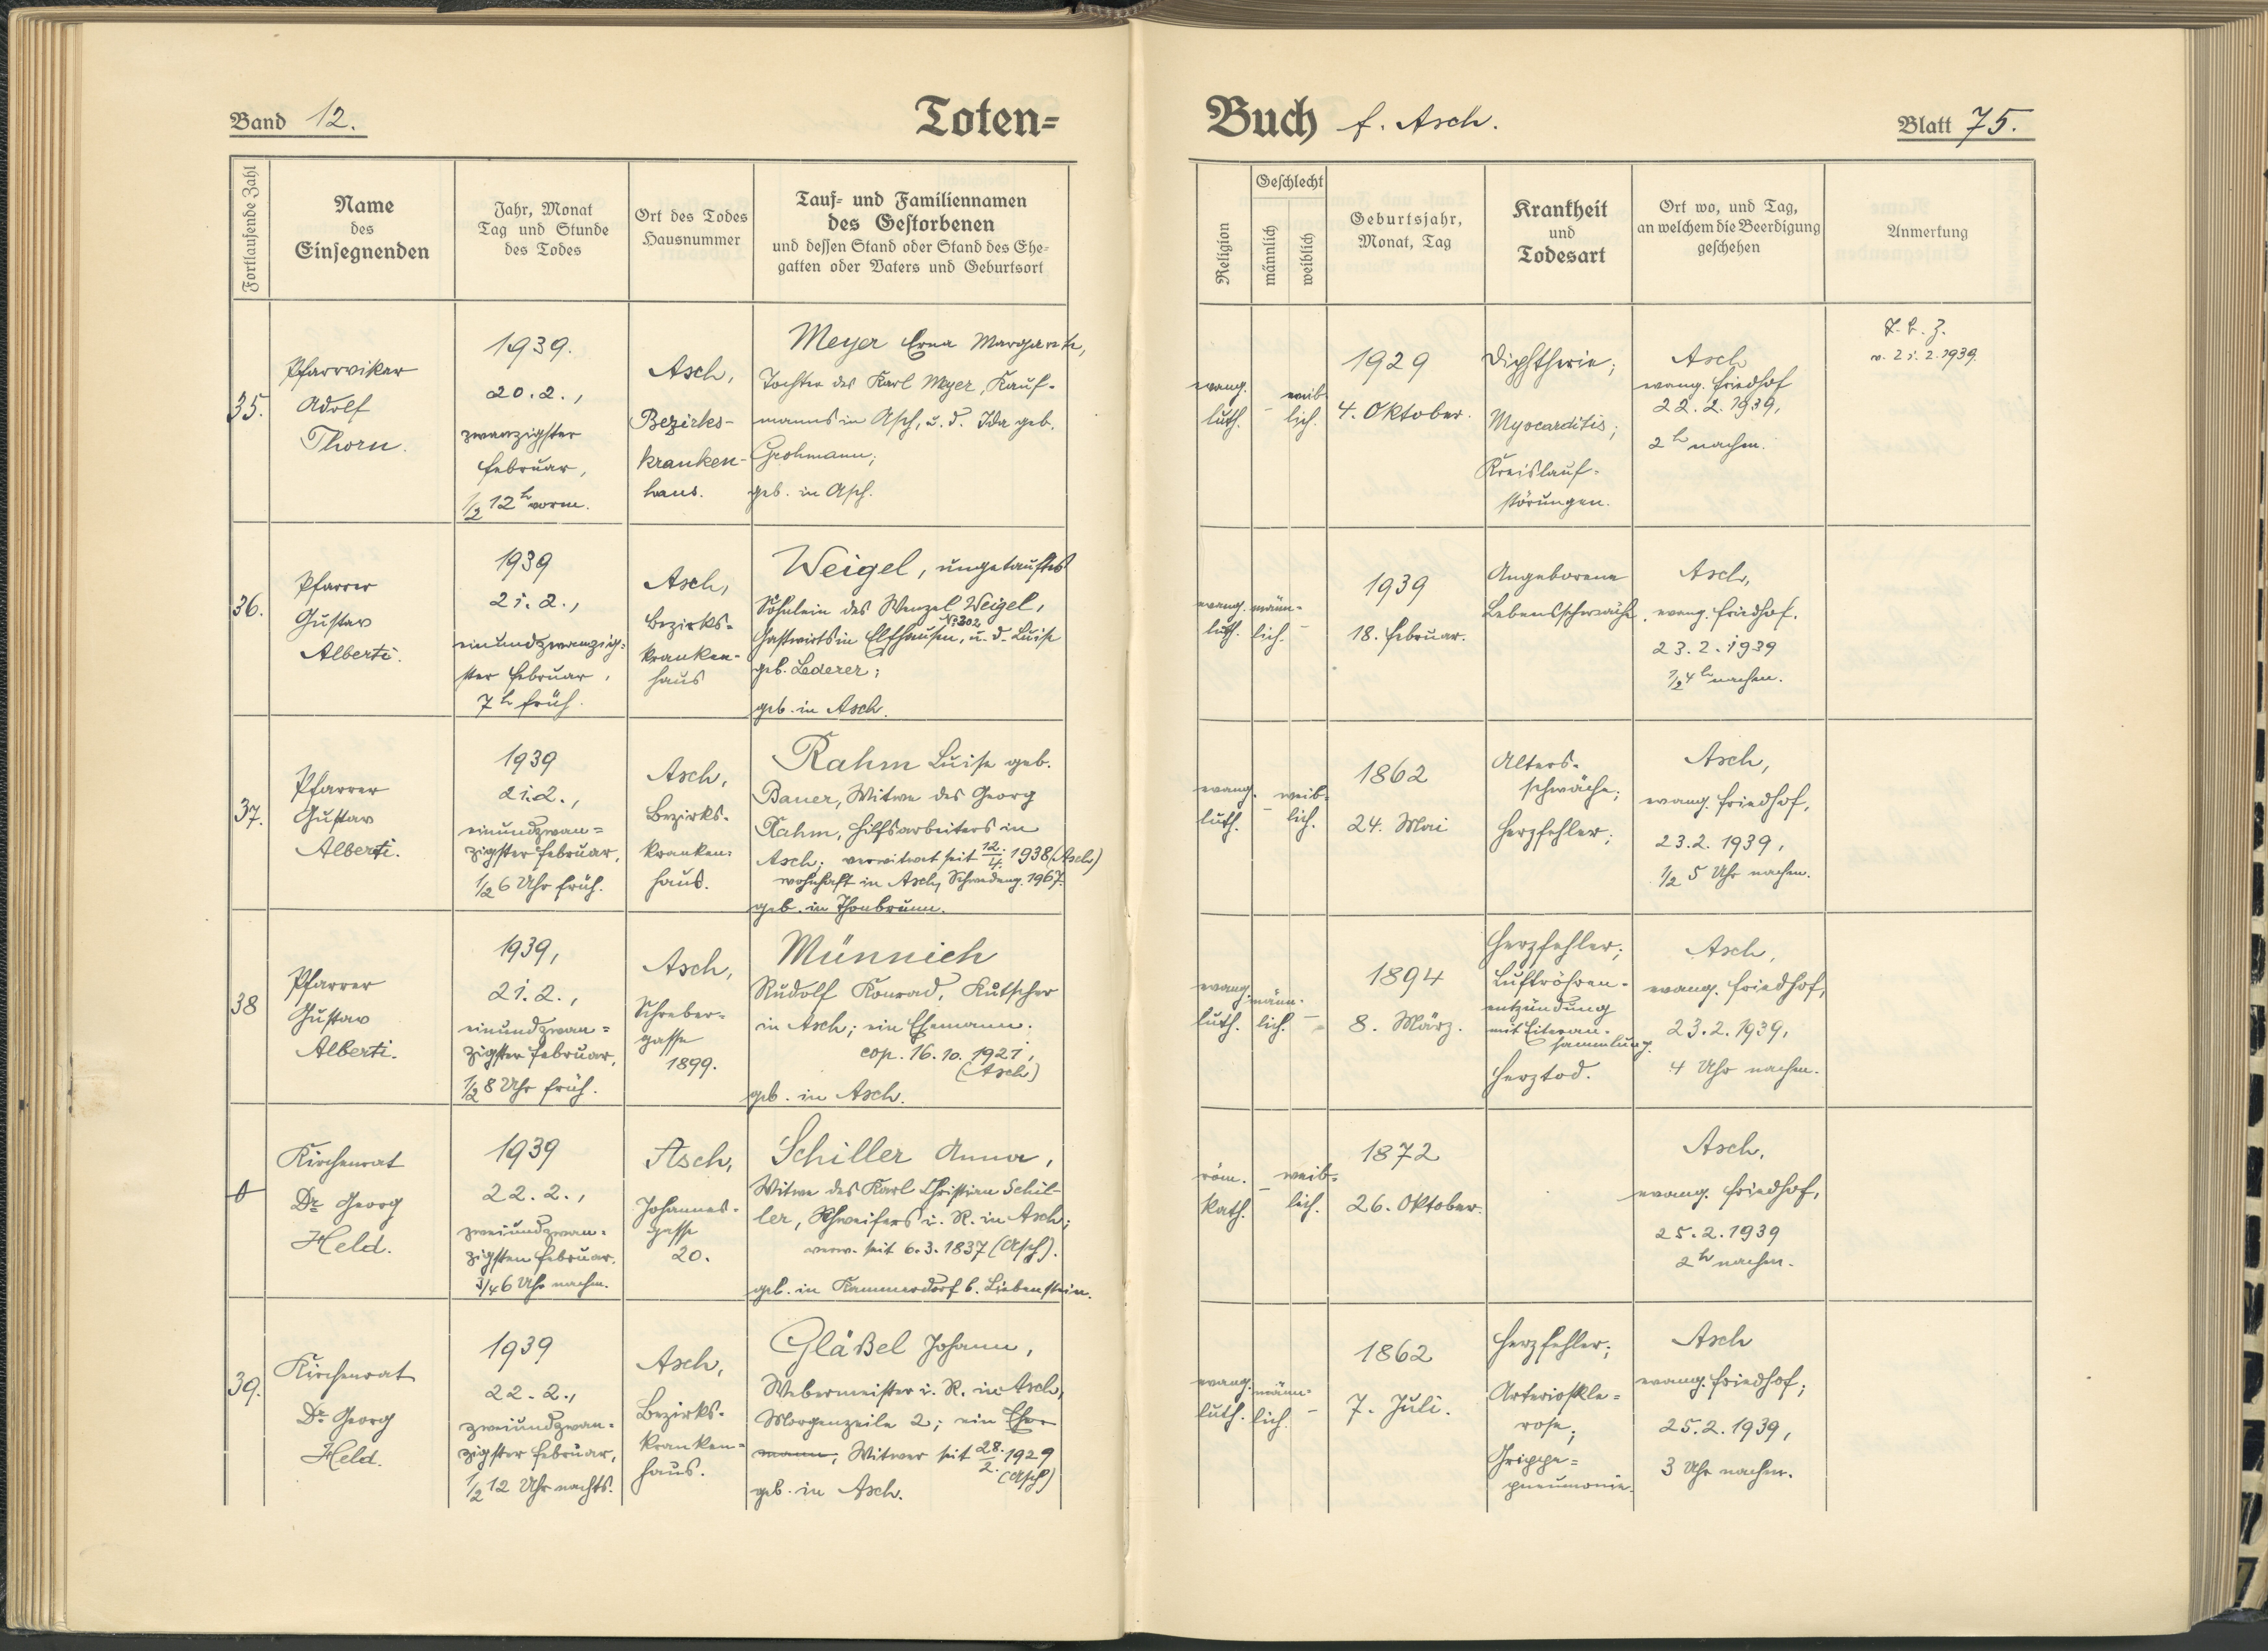 Band 12.
Toten=
Buch f. Asch.
Blatt 75.
Fortlaufende Zahl
Name
des
Einsegnenden
Jahr, Monat
Tag und Stunde
des Todes
Ort des Todes
Hausnummer
Tauf= und Familiennamen
des Gestorbenen
und dessen Stand oder Stand des Ehe=
gatten oder Vaters und Geburtsort
Religion
Geschlecht
männlich
weiblich
Geburtsjahr,
Monat, Tag
Krankheit
und
Todesart
Ort wo, und Tag,
an welchem die Beerdigung
geschehen
Anmerkung
35.
Pfarrvikar
Adolf
Thorn.
1939.
20.2.,
zwanzigster
Februar,
1/2 12 h vorm.
Asch,
Bezirks-
kranken-
haus.
Meyer Erna Margarete,
Tochter des Karl Meyer, Kauf-
manns in Asch, u. d. Ida geb.
Grohmann;
geb. in Asch.
evang.
luth.
-
weib-
lich.
1929
4. Oktober.
Diphtherie;
Myocarditis;
Kreislauf-
störungen.
Asch
evang. Friedhof
22.2.1939,
2 h nachm.
v. 21.2.1939.
36.
Pfarrer
Gustav
Alberti.
1939
21.2.,
einundzwanzig=
ster Februar,
7 h früh.
Asch,
Bezirks=
kranken-
haus
Weigel, ungetauftes
Söhnlein des Wenzel Weigel,
No 302
Gastwirts in Elfhausen, u. d. Luise
geb. Lederer;
geb. in Asch.
evang.
luth.
männ-
lich.
-
1939
18. Februar.
Angeborene
Lebensschwäche.
Asch,
evang. Friedhof.
23.2.1939
1/2 4 h nachm.
37.
Pfarrer
Gustav
Alberti.
1939
21.2.,
einundzwan=
zigster Februar,
1/2 6 Uhr früh.
Asch,
Bezirks-
kranken=
haus.
Rahm Luise geb.
Bauer, Witwe des Georg
Rahm, Hilfsarbeiters in
Asch; verwitwet seit 12./4. 1938 (Asch)
wohnhaft in Asch, 1967.
geb. in Thonbrunn.
evang.
luth.
-
weib=
lich.
1862
24. Mai
Alters-
schwäche;
Herzfehler;
Asch,
evang. Friedhof,
23.2.1939,
1/2 5 Uhr nachm.
38
Pfarrer
Gustav
Alberti.
1939,
21.2.,
einundzwan=
zigster Februar,
1/2 8 Uhr früh.
Asch,
Schreber-
gasse
1899.
Münnich
Rudolf Konrad, Kutscher
in Asch; ein Ehemann.
cop. 16.10.1921,
(Asch)
geb. in Asch.
evang.
luth.
männ-
lich.
-
1894
8. März.
Herzfehler;
Luftröhren-
entzündung
mit Eiteran-
sammlung.
Herztod.
Asch,
evang. Friedhof,
23.2.1939,
4 Uhr nachm.
0
Kirchenrat
Dr Georg
Held.
1939
22.2.,
zweiundzwan-
zigsten Februar,
3/4 6 Uhr nachm.
Asch,
Johannes-
gasse
20.
Schiller Anna,
Witwe des Karl Christian Schil-
ler, Schweifers i. R. in Asch;
verw. seit 6.3.1837 (Asch).
geb. in Kammerdorf b. Liebenstein.
röm.
kath.
-
weib=
lich.
1872
26. Oktober.
Asch,
evang. Friedhof,
25.2.1939
2 h nachm.
39.
Kirchenrat
Dr Georg
Held.
1939
22.2.,
zweiundzwan-
zigster Februar,
1/2 12 Uhr nachts.
Asch,
Bezirks-
kranken=
haus.
Gläßel Johann,
Webermeister i. R. in Asch,
Morgenzeile 2; ein Ehe-
mann, Witwer seit 28./2. 1929
(Asch)
geb. in Asch.
evang.
luth.
männ=
lich
-
1862
7. Juli.
Herzfehler;
Arterioskle=
rose;
Grippe=
pneumonie.
Asch
evang. Friedhof;
25.2.1939,
3 Uhr nachm.